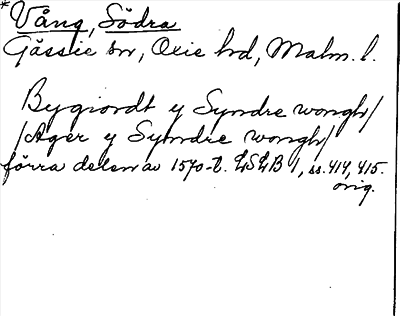 *Vång, Södra
Gässie sn, Oxie hd, Malm. l.
Bygiordt y Syndre wongh/
/Ager y Syndre wongh/
förra delen av 1570-t. LSLB 1, ss. 414, 415.
orig.